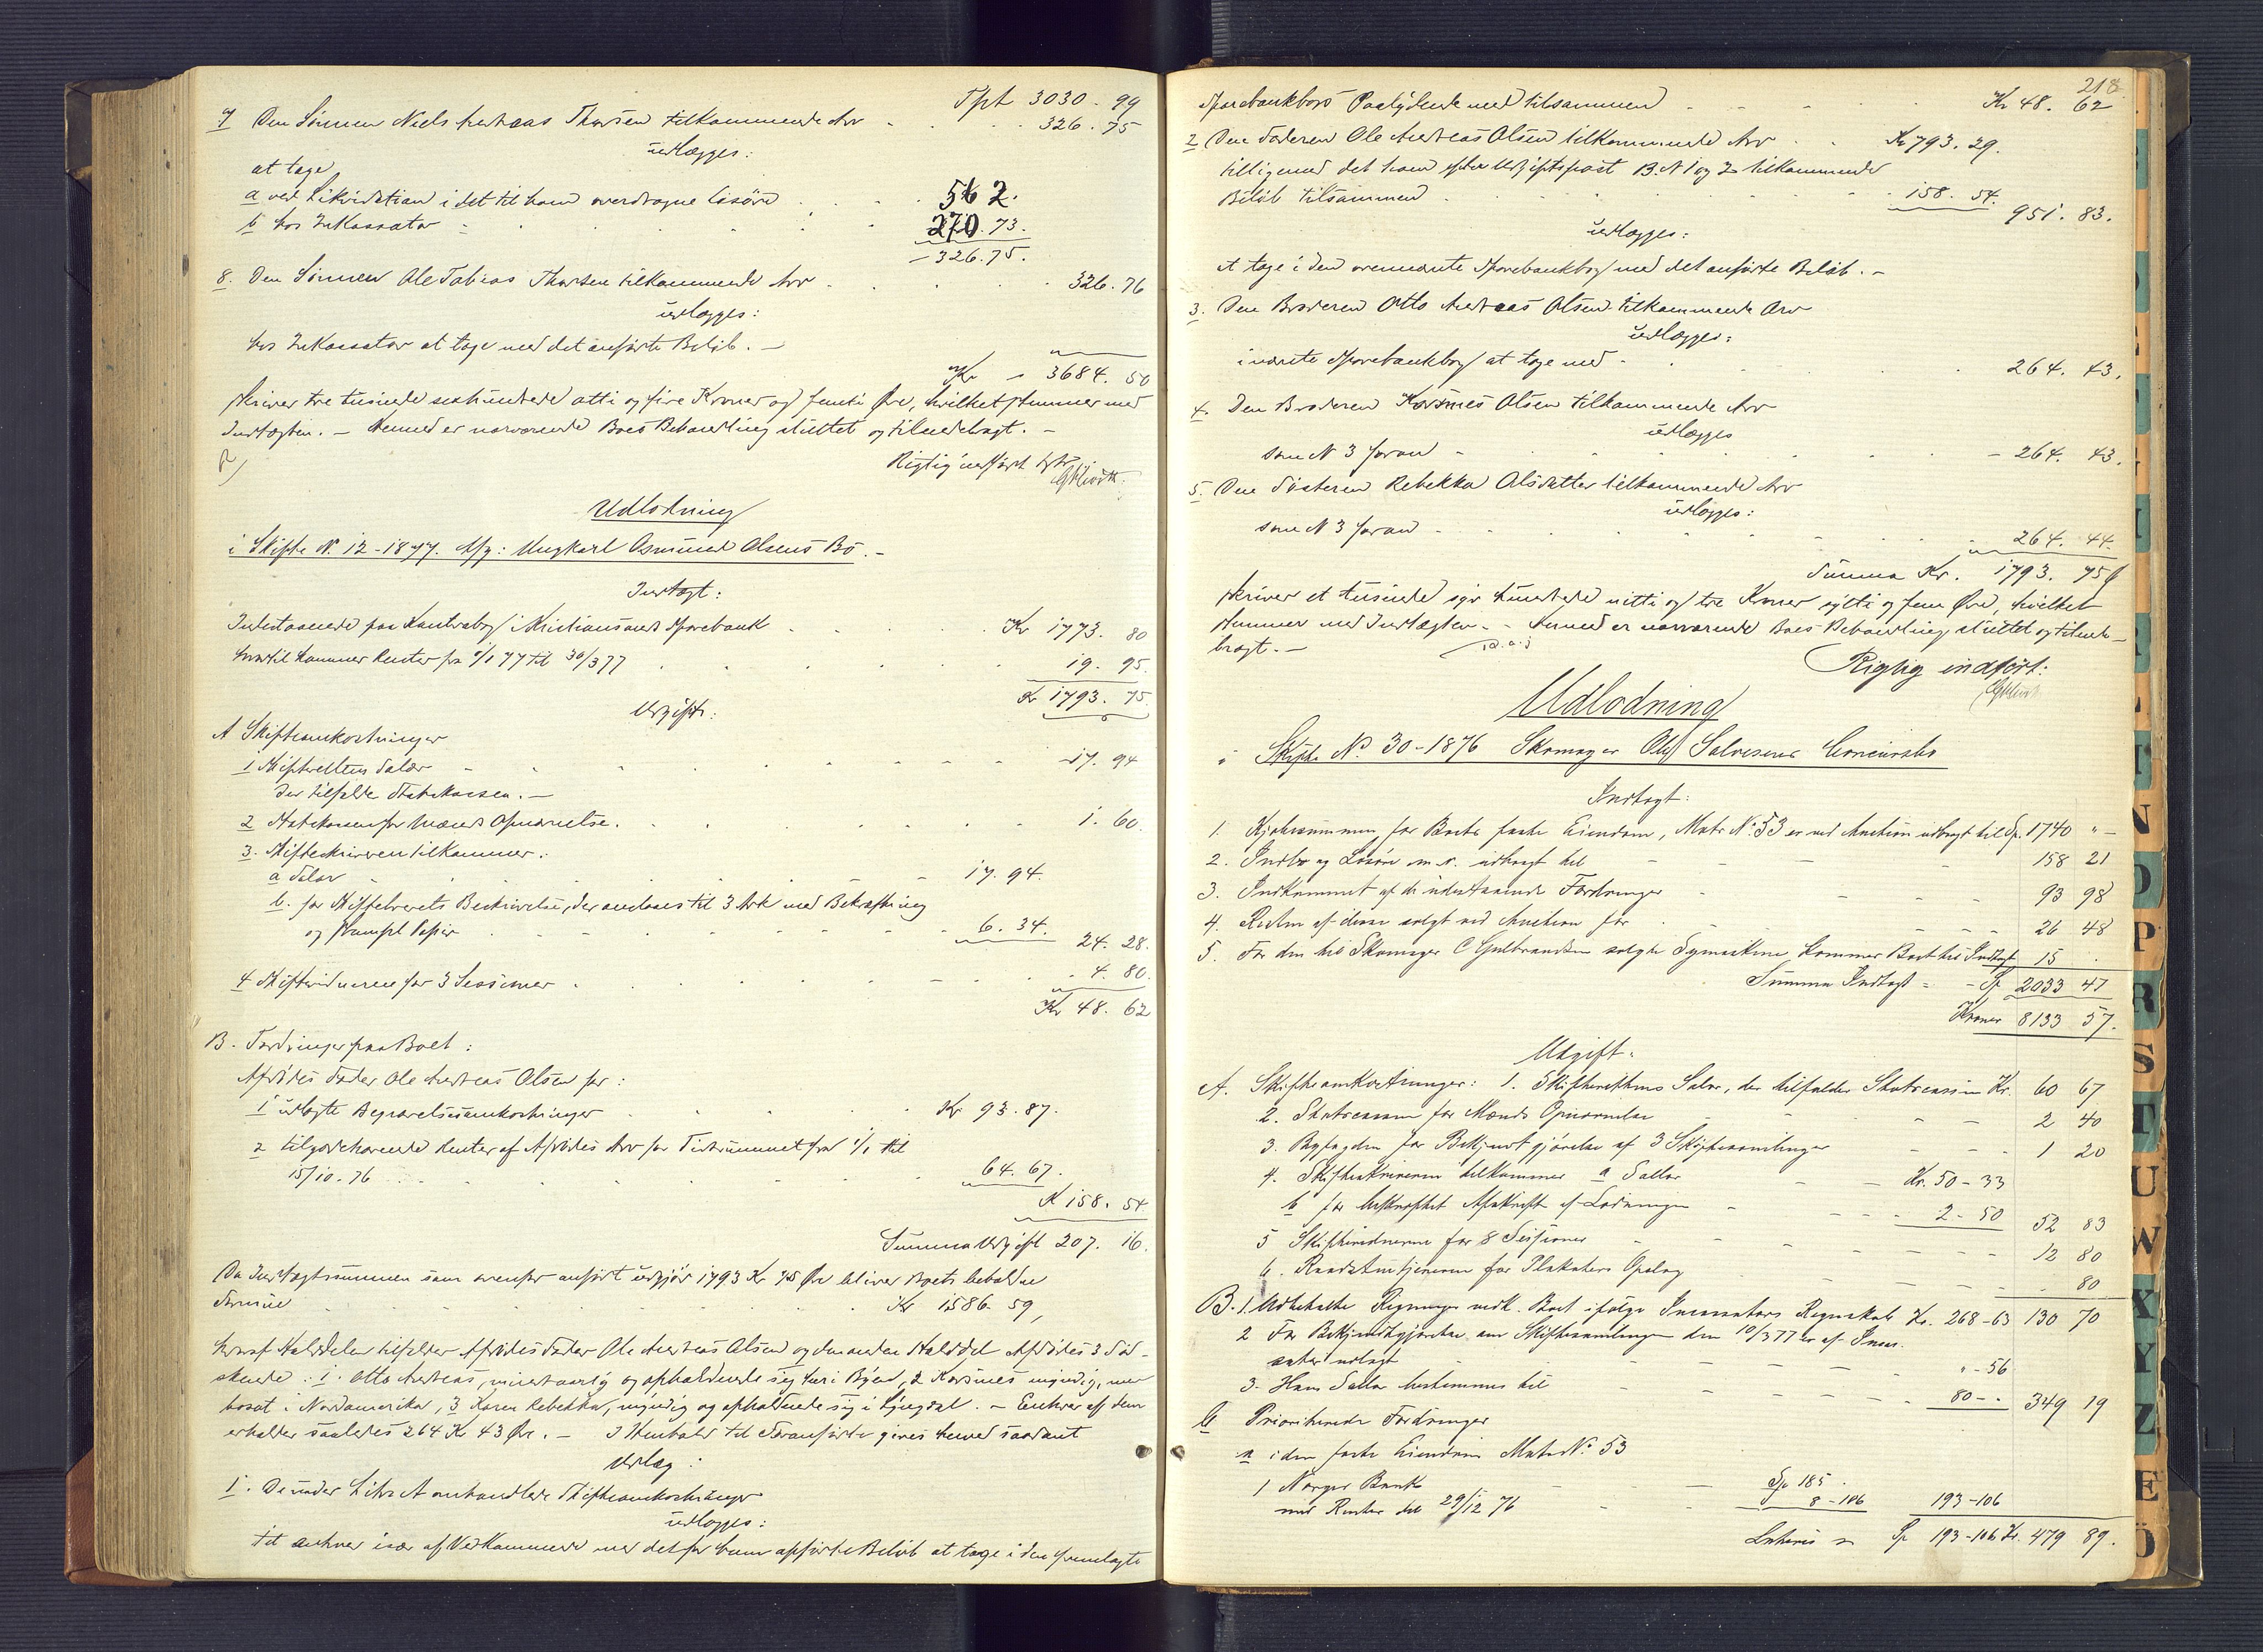 Tpt 3030. 99
7 Den Sönnen Niels Andreas Thorsen tilkommende Arv 326. 75
udlægges:
at tage
a ved Likvidation i det til ham overdragne Lösöre 56 2.
b hos Inkassator 270. 73.
326. 75.
8. Den Sönnen Ole Tobias Thorsen tilkommende Arv 326. 76
udlægges:
hos Inkassator at tage med det anförte Belöb. —
Kr 3684. 50
skriver tre tusinde sexhundrede otti og fire Kroner og femti Öre, hvilket stemmer med
Indtægten. — Hermed er nærværende Boes Behandling sluttet og tilendebragt. —
Rigtig indført
Udlodning
i Skifte N. 12 - 1877. Afg: Ungkarl Osmund Olsens Bo. —
Indtægt:
Indestaaende paa Kontrabog i Kristiansands Sparebank Kr 1773. 80
hvortil kommer Renter fra 1/1 77 til 30/3 77 19. 95.
Kr 1793. 75
Udgift:
A Skifteomkostninger
1 Skifterettens Salær 17. 94
der tilfalde Statskassen. —
2 Statskassen for Mænds Opnævnelse. 1. 60.
3. Skifteskriveren tilkommer:
a Salær 17. 94.
b. for Skiftebrevets Beskrivelse, der anslaaes til 3 Ark med Bekræftning
og stemplet Papir 6. 34. 24. 28.
4 Skiftevidnerne for 3 Sessioner 4. 80.
Kr 48. 62
B. Fordringer paa Boet:
Afdödes Fader Ole Andreas Olsen for:
1 udlagte Begravelsesomkostninger Kr 93. 87.
2 tilgodehavende Renter af Afdödes Arv for Tidsrummet fra 1/1 til
15/10. 76 64. 67.
K 158. 54
Summa Udgift 207. 16.
Da Indtægtssummen som ovenfor anfört udgjör 1793 Kr 75 Öre bliver Boets beholdne
Formue Kr 1586. 59,
hvoraf Halvdelen tilfalder Afdödes Fader Ole Andreas Olsen og den anden Halvdel Afdödes 3 Söd-
skende: 1. Otto Andreas, mindreaarig og opholdende sig her i Byen, 2 Korsnes myndig, men
bosat i Nordamerika, 3 Karen Rebekka, myndig og opholdende sig i Lyngdal. — Enhver af dem
erholder saaledes 264 Kr 43 Öre. — I Henhold til Foranförte gives herved saadant
Udlæg:
1. De under Litra A omhandlede Skifteomkostninger
udlægges:
til enhver især af Vedkommende med det for ham opförte Belöb at tage i den fremlagte
218
Sparebankbogs Paalydende med tilsammen Kr 48. 62
2 Den Faderen Ole Andreas Olsen tilkommende Arv Kr 793. 29.
tilligemed det ham efter Udgiftspost B. N 1 og 2 tilkommende
Belöb tilsammen 158. 54. 951. 83.
udlægges:
at tage i den ovennævnte Sparebankbog med det anförte Belöb. —
3. Den Broderen Otto Andreas Olsen tilkommende Arv
udlægges:
i nævnte Sparebankbog at tage med 264. 43.
4. Den Broderen Korsnes Olsen tilkommende Arv
udlægges
som N 3 foran 264. 43.
5. Den Sösteren Rebekka Olsdatter tilkommende Arv
udlægges:
som N 3 foran 264. 44.
Summa Kr. 1793. 75
skriver et tusinde syv hundrede nitti og tre Kroner sytti og fem Öre, hvilket
stemmer med Indtægten. — Hermed er nærværende Boes Behandling sluttet og tilende-
bragt. —
Rigtig indført:
Udlodning
i Skifte No 30 - 1876 Skomager Oluf Salvesens Concursbo
Indtægt:
1. Kjøbesummen for Boets faste Eiendom, Matr No 53 er ved Auction udbragt til Sp. 1740 " —
2. Indbo og Løsøre m. v. udbragt til 158 21
3. Indkommet af de udestaaende Fordringer 93 98
4. Resten af disse solgt ved Auction for 26 48
5. For den til Skomager C Gulbrandsen solgte Symaskine kommer Boet til Indtægt 15 .
Summa Indtægt Sp 2033 47
Kroner 8133 57.
Udgift:
A. Skifteomkostninger: 1. Skifterettens Salær, der tilfalder Statscassen Kr. 60 67
2. Statscassen for Mænds Opnævnelse 2 40
3. Byfogden for Bekjendtgjørelse af 3 Skiftesamlinger 1 20
4. Skifteskriveren tilkommer a Sallær Kr. 50 - 33
b for bekræftet Afskrift af Lodningen 2 - 50 52 83
5 Skiftevidnerne for 8 Sessioner 12 80
6. Raadstutjeneren for Plakaters Opslag 80
B. 1. Udbetalte Regninger vedk. Boet ifølge Incassators Regnskab Kr. 268 - 63 130 70
2 For Bekjendtgjørelse om Skiftesamlingen den 10/3 77 er af Incas-
sator udlagt " - 56
3. Hans Sallær bestemmes til 80 - - 349 19
C Prioriterede Fordringer
a i den faste Eiendom Matr No 53
1 Norges Bank Sp 185 .
med Renter til 29/12 76 8 - 106 193 - 106
Lateris Sp 193 - 106 Kr. 479 89.
N
D
P
R
S
T
U
W
X
Y
Z
Æ
Ö